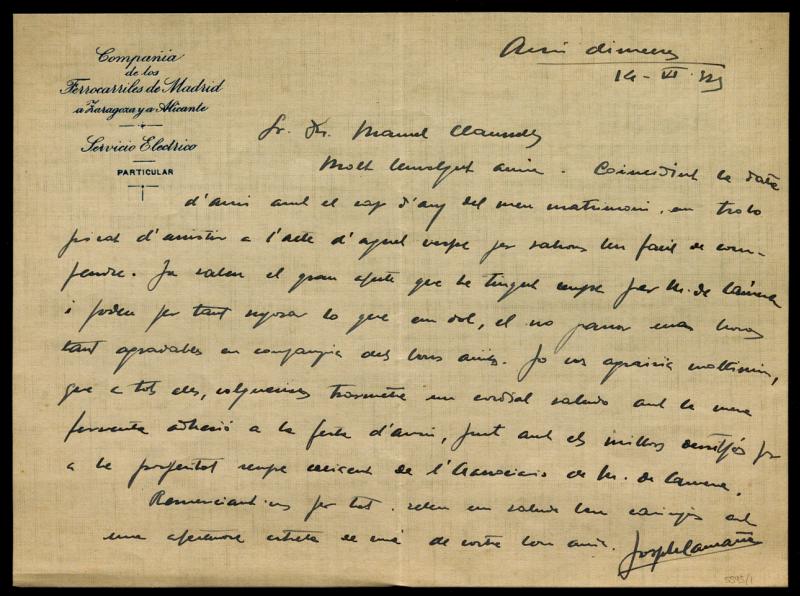 Compañia
de los
Ferrocarriles de Madrid
a Zaragoza y a Alicante
Servicio Eléctrico
PARTICULAR
Avui dimecres
14 - VI
Sr. Dn. Manuel
Molt benvolgut amic. Coincidint la data
d'avui amb el cap d'any del meu matrimoni, em trobo
privat d'assistir a l'acte d'aquest vespre per rahons ben facil de com-
pendre. Ja saben el gran afecte que he tingut sempre per M. de
i poden per tant suposar lo que em dol, el no passar unas horas
tant agradables en companyia dels bons amics. Jo us agrairia moltissim,
que a tots ells, volguessiu trasmetre un cordial saludo amb la meva
ferventa adhesió a la festa d'avui, junt amb els millors desitjos per
a la prosperitat sempre creixent de l'Associació de M. de
Remerciant-vos per tot, rebeu un saludo ben carinyós amb
una afectuosa estreta de má de vostre bon amic. Joseph
5595/1